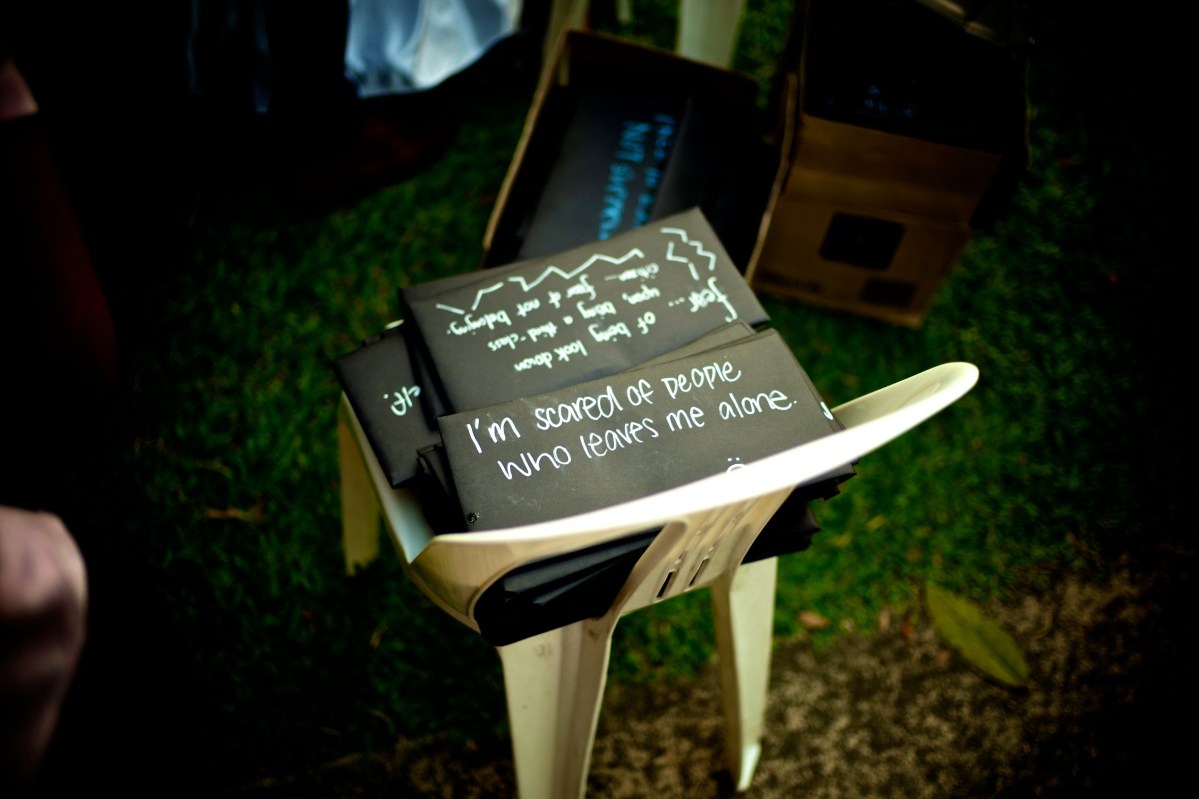 fear...
of being look down
upon, being a third-class
citizen... fear of not belonging.
I'm scared of people
who leaves me alone.